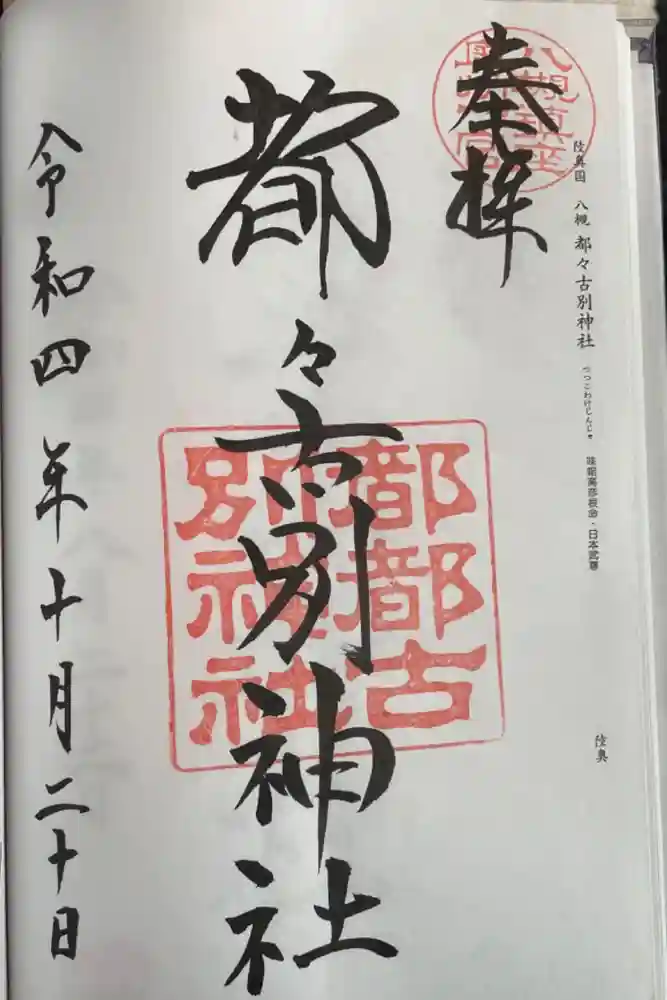 陸奥国 八槻 都々古別神社 つつこわけじんじゃ 味耜高彦根命・日本武尊
陸奥
奉拝
八槻鎮座
都々古別神社
都都古
別神社
令和四年十月二十日